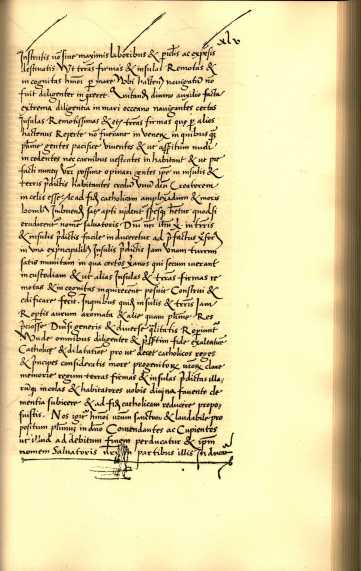 xlv
Instrutis nõ sine maximis laboribus & piculis ac expẽsis
destinatis Ut terras firmas & insulas Remotas &
incognitas hmõi p mare Vbi hacten9 navigatũ nõ
fuit diligenter inqreret Qui tandẽ divino auxilio facta
extrema diligentia in mari occeano navigantes certas
Insulas Remotissimas & etiã terras firmas que p alios
hactenus Reperte nõ fuerant invener in quibus q
plurime gentes pacifice viventes & ut asseritur nudi
incedentes nec carnibus vescentes inhabitant & ut pre
facti nuncij vri possunt opinari gentes ipe in insulis &
terris pdictis habitantes credũt vnũ deũ Creatorem
in celis esse Ac ad fidẽ catholicam amplexãdum & moris
bonis Inbuendũ satis apti vident spesq hetur quod si
erudirent nomẽ salvatoris Dni nri ihu xpi in terris
& insulis pdictis facile induceretur ad pfactus xpofer
in vna ex principalib9 Insulis pdictis Iam vnam turrem
satis munitam in qua certos xpianos qui secum ierant
in custodiam & ut alias Insulas & terras firmas re
motas & incognitas inquirerent posuit Construi &
edificare fecit. In quibus quidẽ insulis & terris Iam
Reptis aurum aromata & alie quam plurime Res
pciose Diversi generis & diverse qlitatis Reperiunt
Unde omnibus diligenter & psertim fidei exaltatiõe
Catholice & dilatatiõe prout decet catholicos reges
& principes consideratis more progenitorũ vrorũ clare
memorie regum terras firmas & insulas pdictas illa
rũq incolas & habitatores vobis divina favente cle
mentia subicere & ad fidẽ catholicam reducere propo
suistis. Nos igitur hmõi vrum sanctum & laudabile pro
positum plurimũ in dno Comendantes ac Cupientes
ut illud ad debitum finem perducatur & ipm
nomem Salvatoris nri in partibus illis Inducat